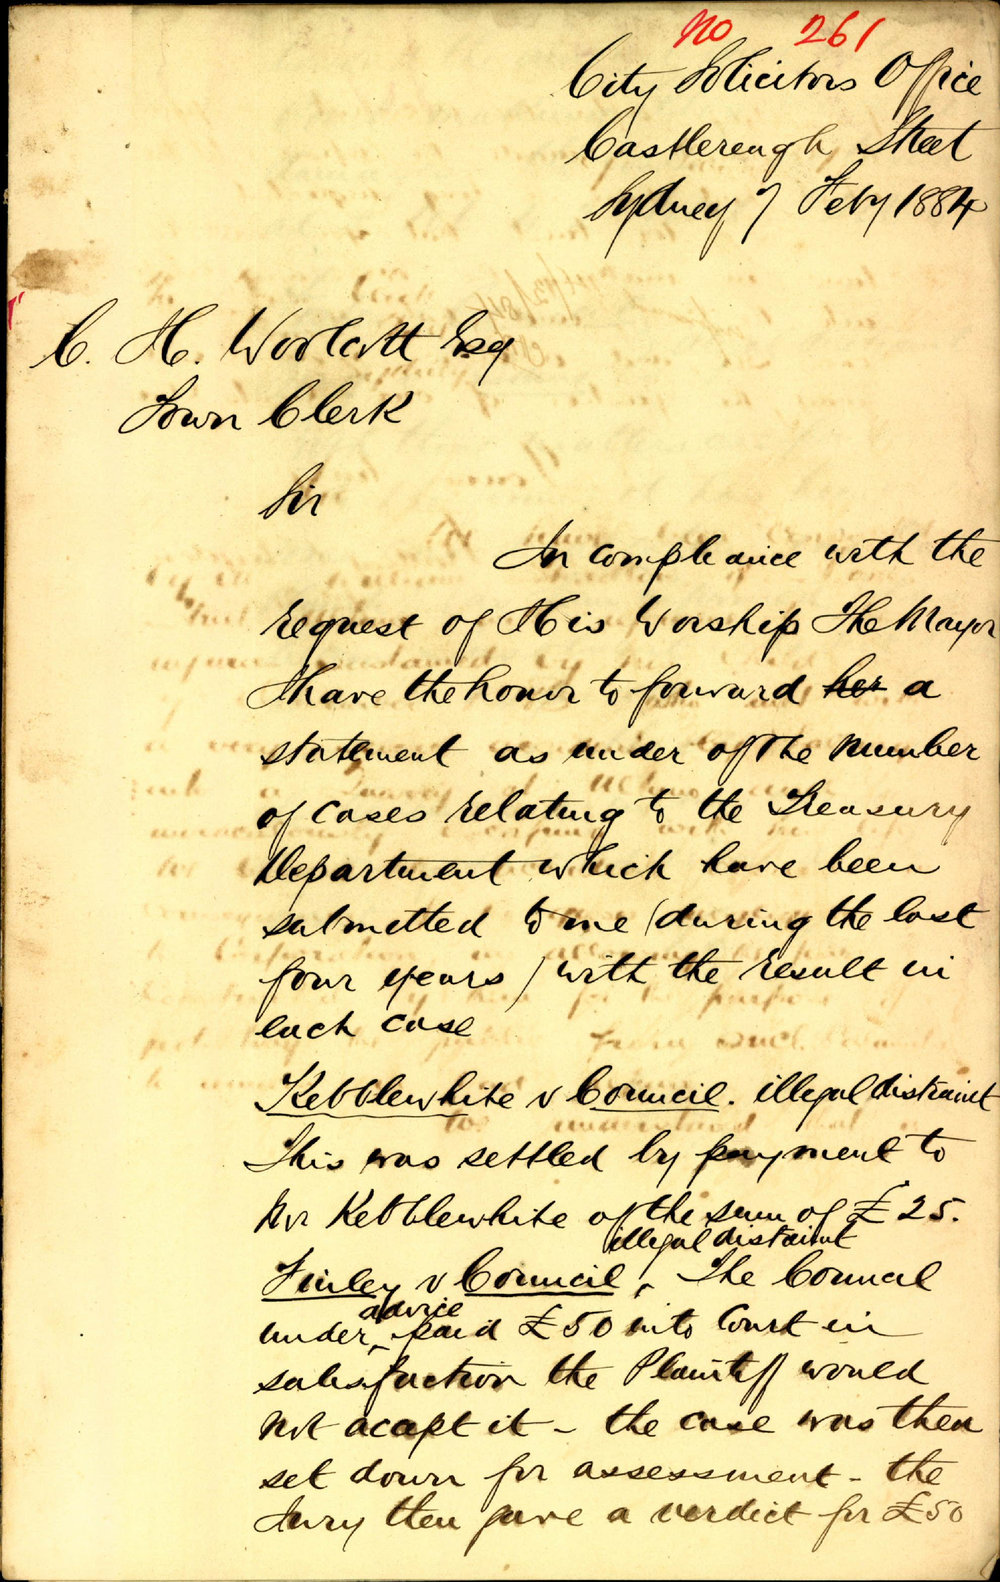 No 261
City Solicitors Office
Castlereagh Street
Sydney 7 Feby 1884
C. H. Woolcott Esq
Town Clerk
Sir
In compliance with the
request of His Worship The Mayor
I have the honor to forward her a
statement as under of the number
of cases relating to the Treasury
Department which have been
submitted to me (during the last
four years) with the result in
each case
Kebblewhite v Council. illegal distraint
This was settled by payment to
Mr Kebblewhite of the sum of £25.
illegal distraint
Finley v Council, The Council
advice
under paid £50 into Court in
satisfaction the Plaintiff would
not accept it - the case was then
set down for assessment - the
Jury then gave a verdict for £50